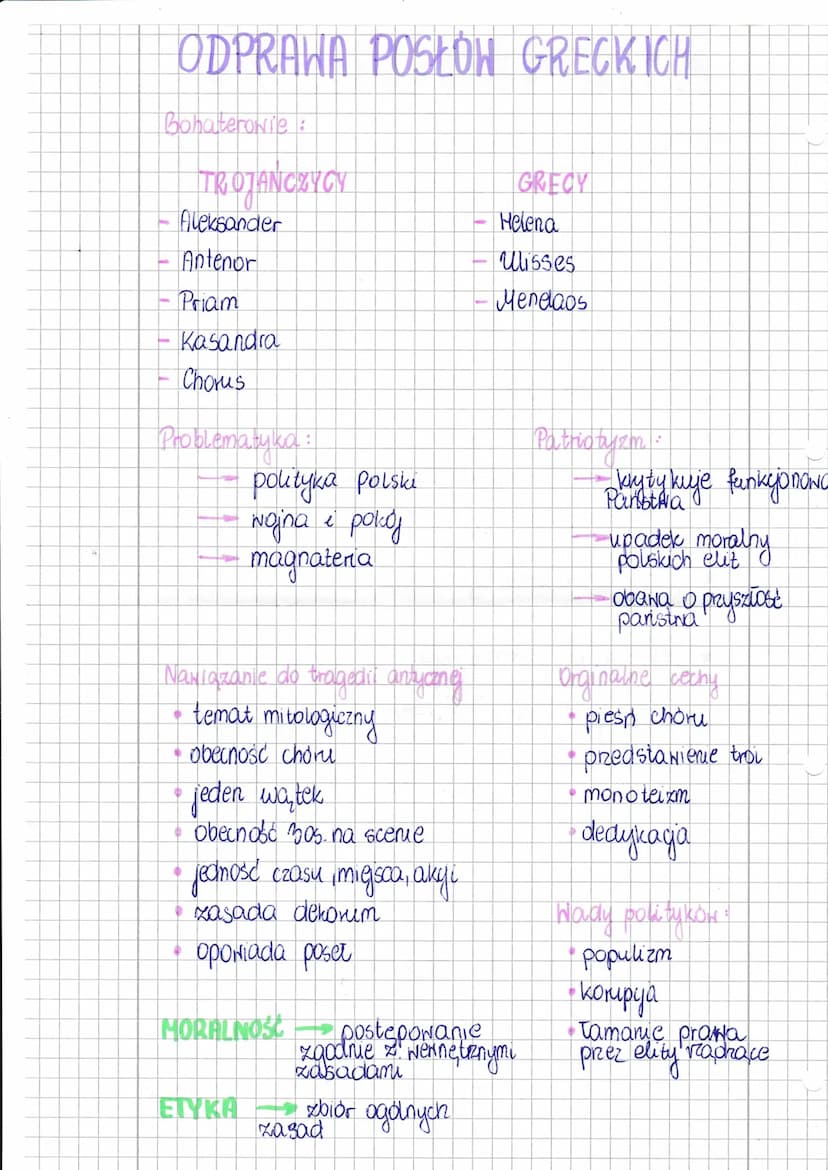 ODPRAWA POSŁÓW GRECKICH
Bohaterowie :
TROJAŃCZYCY
- Aleksander
- Antenor
- Priam
- Kasandra
- Chorus
GRECY
- Helena
- Ulisses
- Menelaos
Problematyka :
→ polityka Polski
→ wojna i pokój
→ magnateria
Patriotyzm :
→ krytykuje funkcjonowa
Państwa
→ upadek moralny
polskich elit
→ obawa o przyszłość
państwa
Nawiązanie do tragedii antycznej
• temat mitologiczny
• obecność chóru
• jeden wątek
• obecność 3 os. na scenie
• jedność czasu, miejsca, akcji
• zasada dekorum
• opowiada poseł
Orginalne cechy
• pieśń chóru
• przedstawienie troi
• monoteizm
• dedykacja
Wady polityków :
• populizm
• korupcja
• łamanie prawa
przez elity rządzące
MORALNOŚĆ → postępowanie
zgodnie z wewnętrznymi
zasadami
ETYKA → zbiór ogólnych
zasad